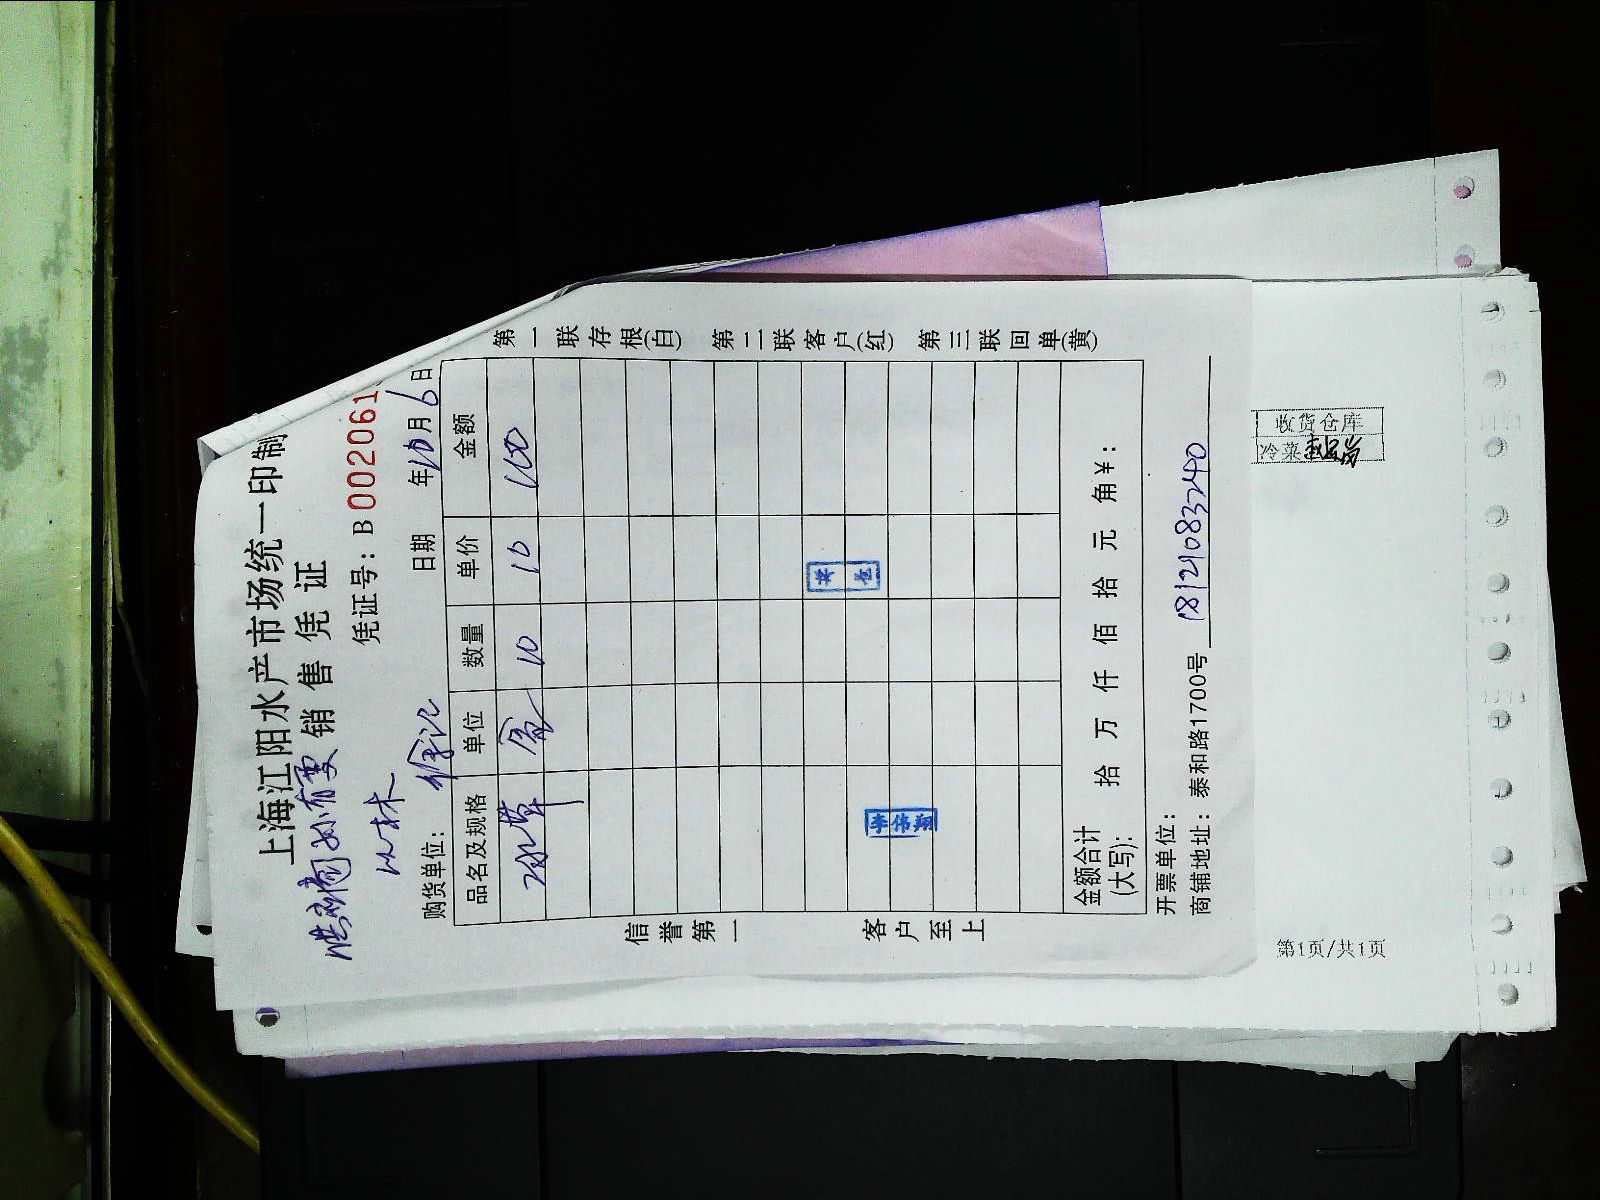 上海江阳水产市场统一印制
销售凭证
凭证号：B 002061
日期 年10月6日
购货单位：
品名及规格 单位 数量 单价 金额
冰草 盒 10 10 100
金额合计(大写)： 拾 万 仟 佰 拾 元 角 ¥：
开票单位：
商铺地址：泰和路1700号 18121083240
第一联存根(白) 第二联客户(红) 第三联回单(黄)
信誉第一 客户至上
李伟翔
收货仓库
冷菜
第1页/共1页